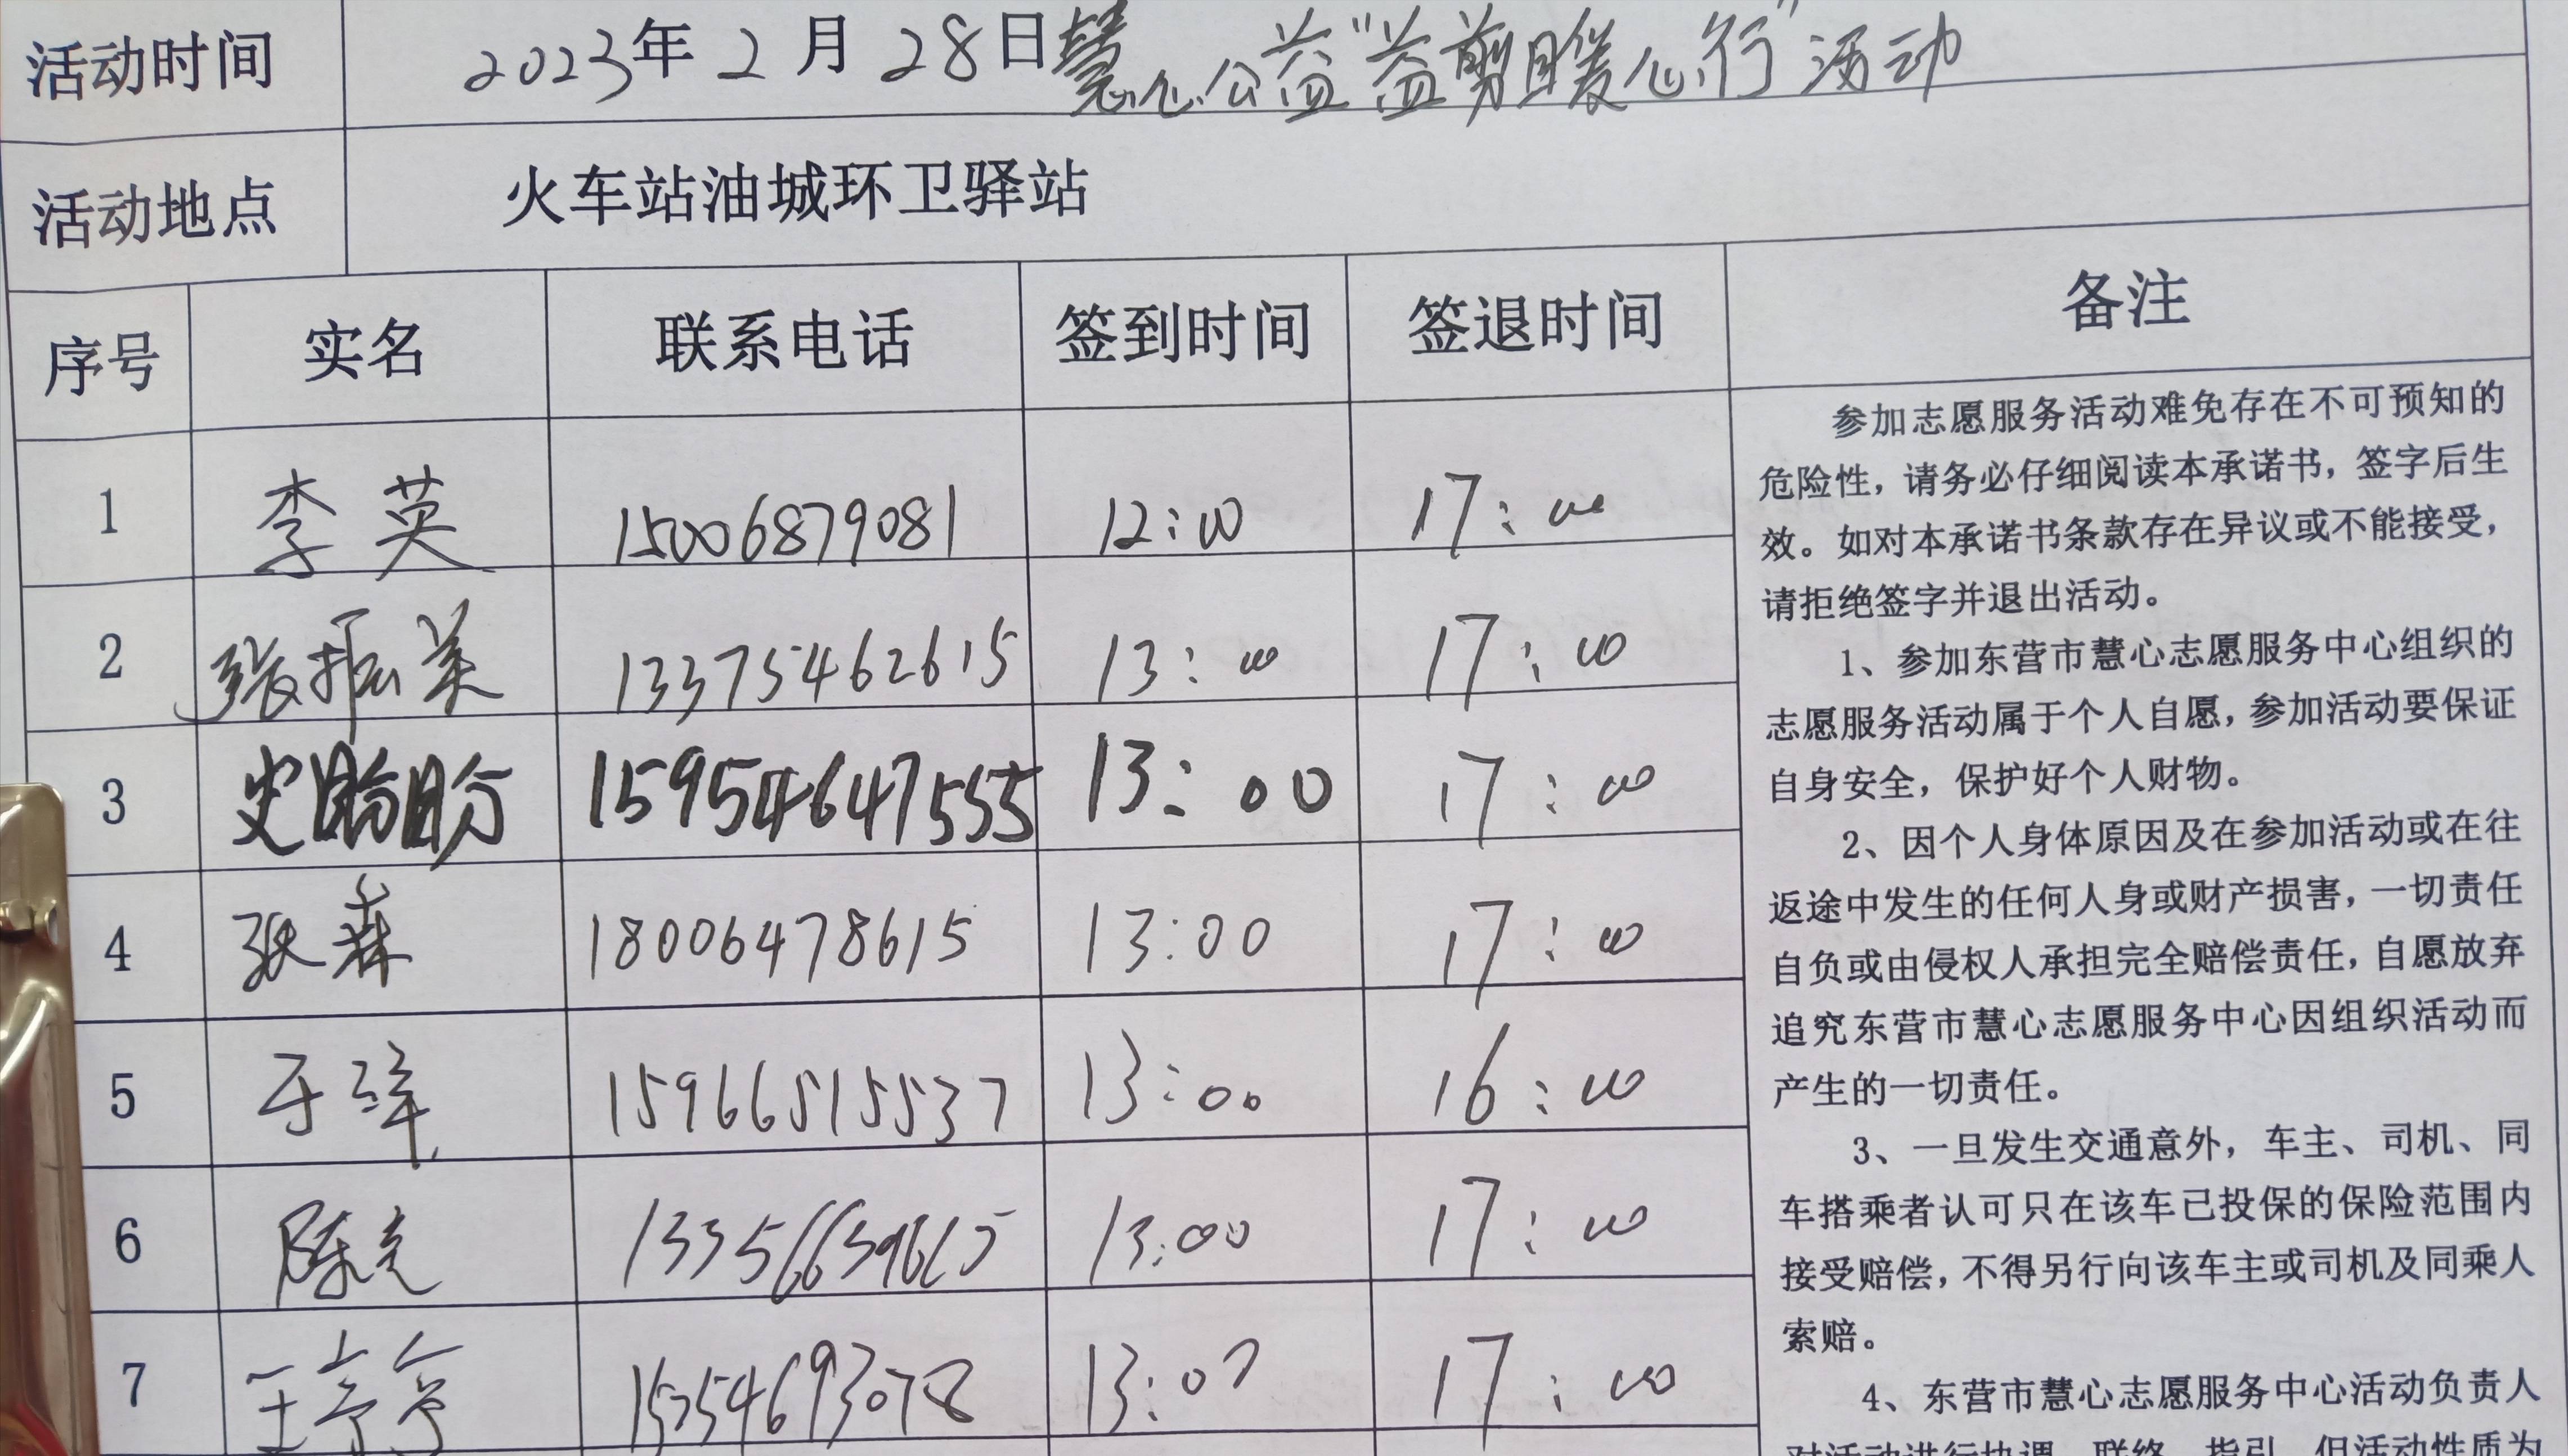 活动时间 2023年2月28日慧心公益“益剪暖心行”活动
活动地点 火车站油城环卫驿站
序号 实名 联系电话 签到时间 签退时间 备注
1 李英 15006879081 12:00 17:00
2 张振美 13375462615 13:00 17:00
3 史盼盼 15954647555 13:00 17:00
4 张森 18006478615 13:00 17:00
5 于洋 15966515537 13:00 16:00
6 陈克 13356639615 13:00 17:00
7 王亭亭 15254693078 13:00 17:00
参加志愿服务活动难免存在不可预知的
危险性，请务必仔细阅读本承诺书，签字后生
效。如对本承诺书条款存在异议或不能接受，
请拒绝签字并退出活动。
1、参加东营市慧心志愿服务中心组织的
志愿服务活动属于个人自愿，参加活动要保证
自身安全，保护好个人财物。
2、因个人身体原因及在参加活动或在往
返途中发生的任何人身或财产损害，一切责任
自负或由侵权人承担完全赔偿责任，自愿放弃
追究东营市慧心志愿服务中心因组织活动而
产生的一切责任。
3、一旦发生交通意外，车主、司机、同
车搭乘者认可只在该车已投保的保险范围内
接受赔偿，不得另行向该车主或司机及同乘人
索赔。
4、东营市慧心志愿服务中心活动负责人
对活动进行协调、联络、指引，但活动性质为